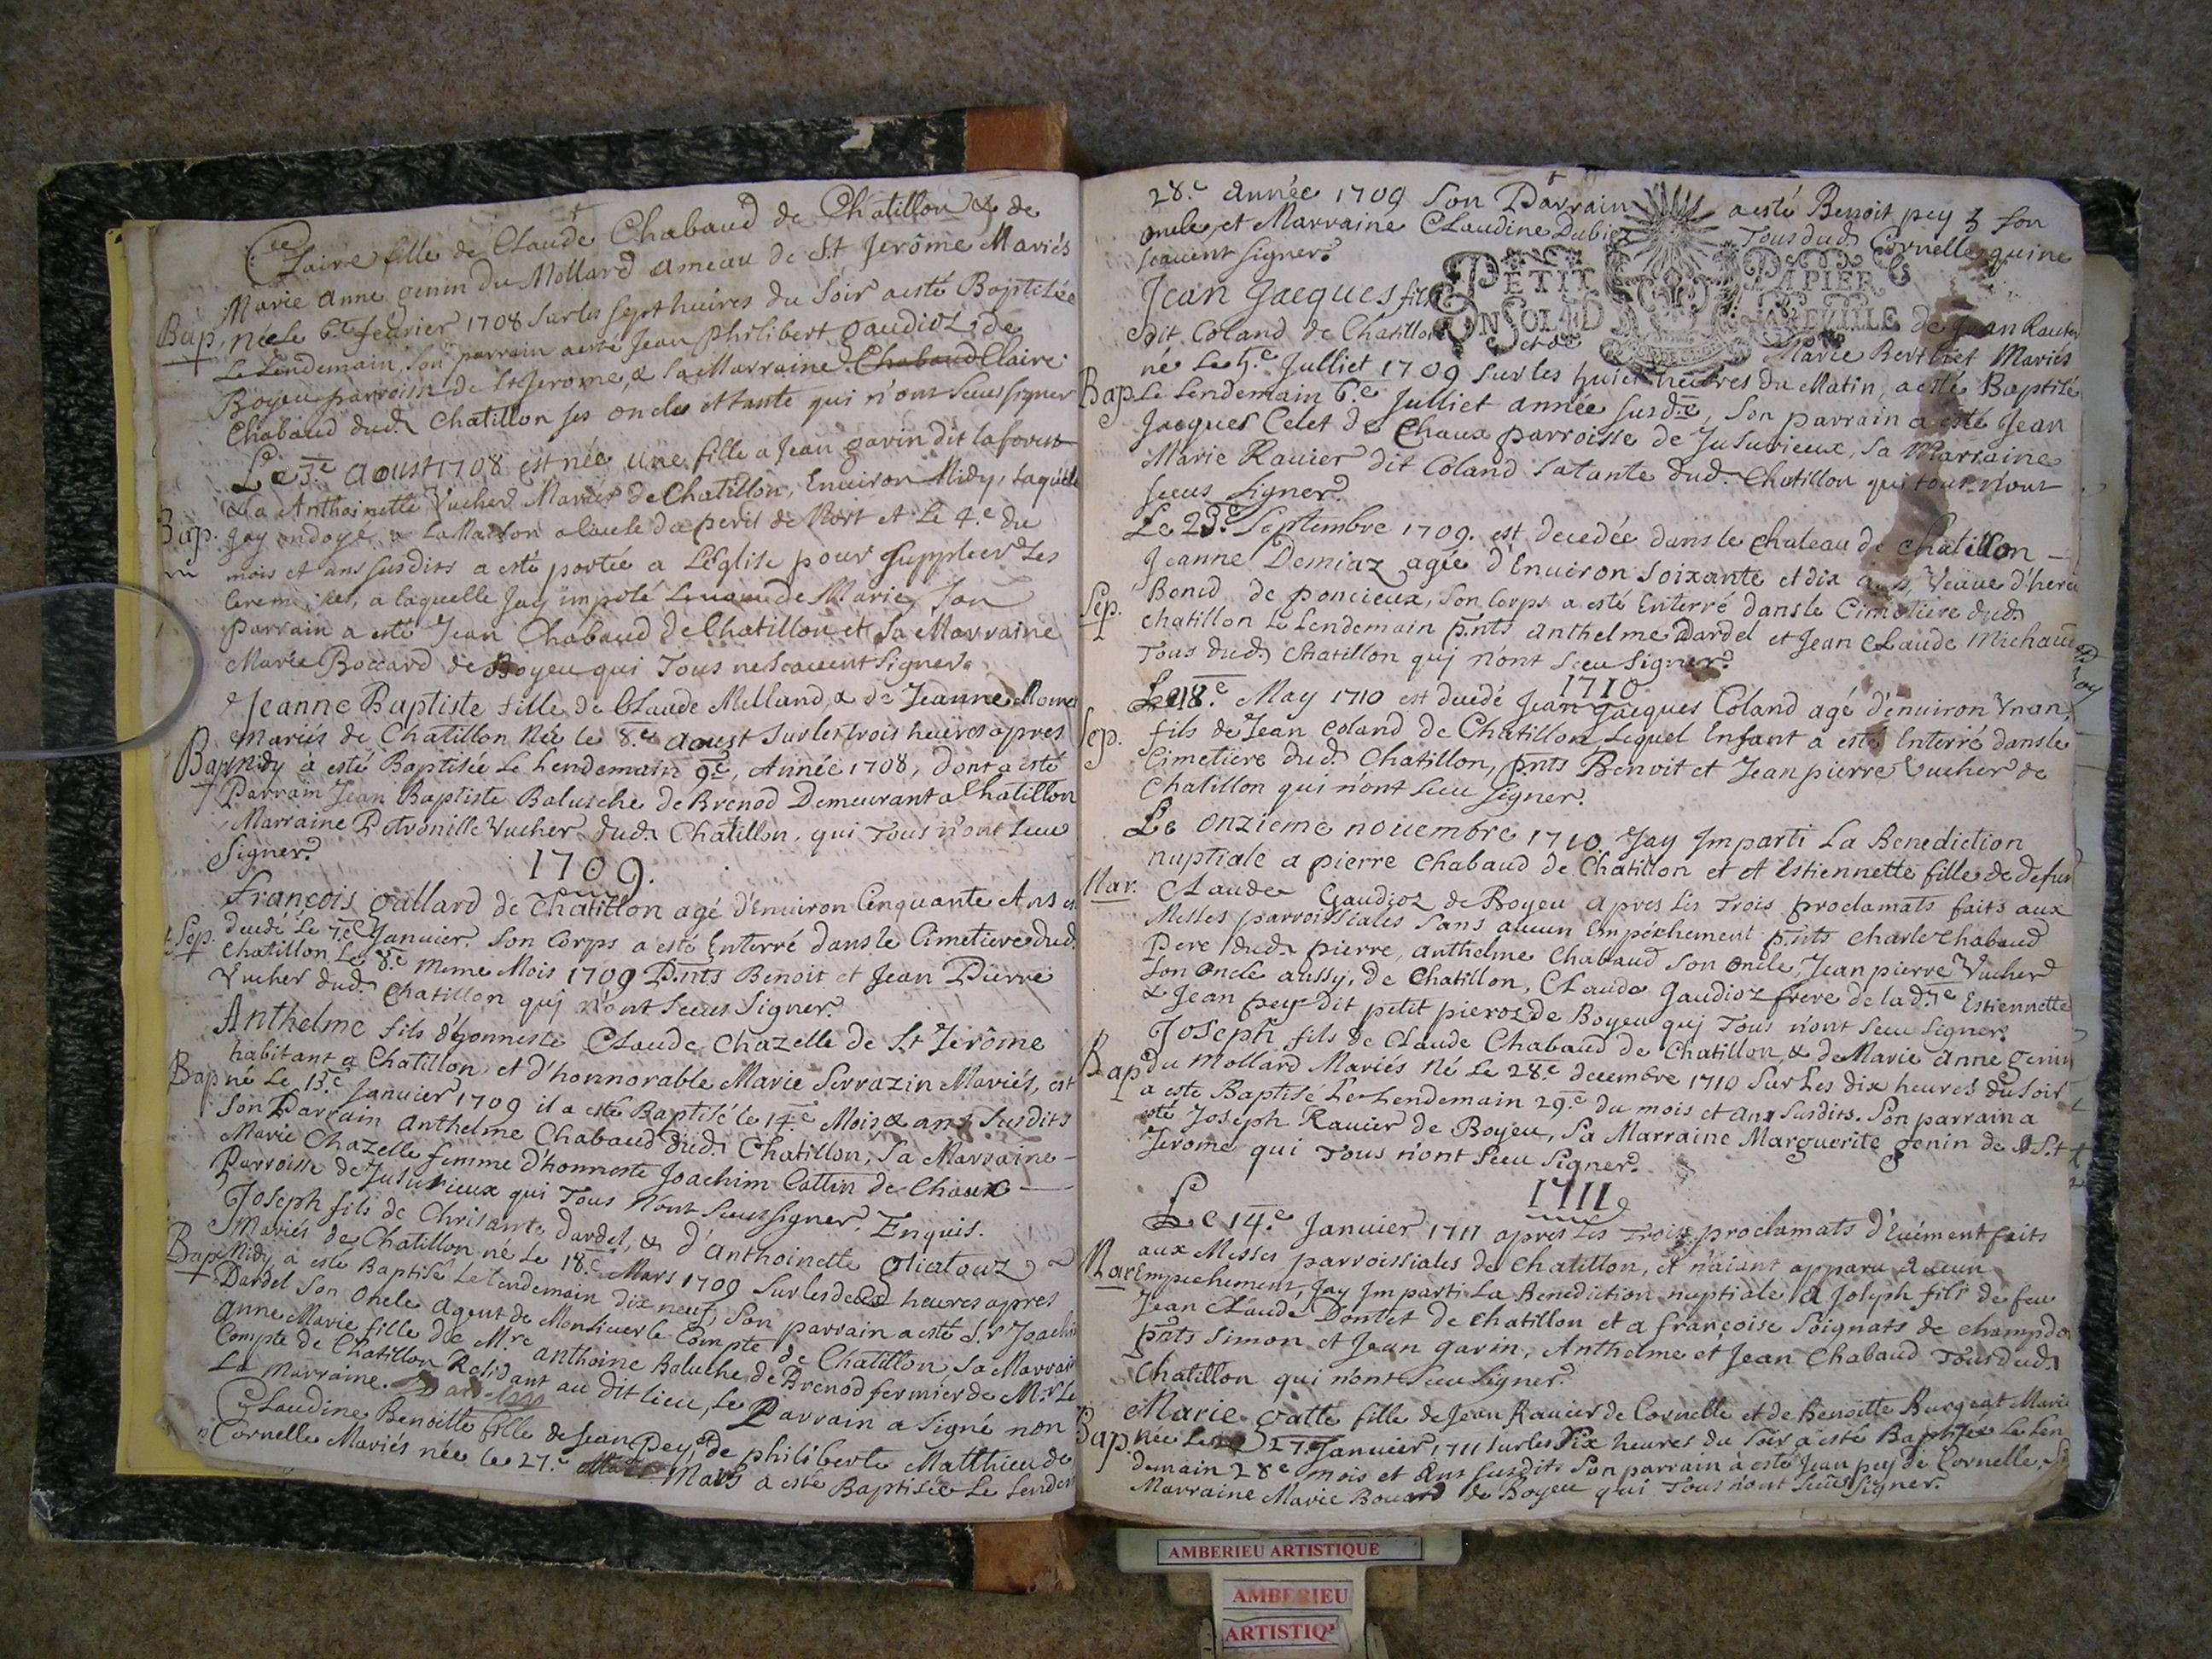 Claire fille de Claude Chabaud de Chatillon & de
Marie Anne genin du Mollard ameau de St Jerôme Mariés
Bap. née le 6.e feurier 1708 sur les sept heures du soir a esté Baptisée
Le Lendemain, son parrain a esté Jean Philibert gaudioz de
Boyeu parroisse de St Jerome, & sa Marraine Chabaud Claire
Chabaud dud. Chatillon ses oncles et tante qui n'ont sceu signer
Le 3.e aoust 1708 est née une fille a Jean garin dit laforest
& a Anthoinette Vucher Mariés de Chatillon, Enuiron Midy, laquelle
Bap. Jay ondoyé a la Maison a cause de peril de Mort et Le 4.e du
mois et ans susdits a esté portée a L'Eglise pour suppleer Les
ceremonies, a laquelle Jay imposé Le nom de Marie, son
parrain a esté Jean Chabaud de Chatillon et sa Marraine
Marie Boccard de Boyeu qui Tous ne scauent signer.
Jeanne Baptiste fille de Claude Milland, & de Jeanne
Mariés de Chatillon Née le 8.e Aoust sur les trois heures apres
Bap. midy a esté Baptisée Le Lendemain 9.e, Année 1708, dont a esté
Parrain Jean Baptiste Balusche de Brenod Demeurant a Chatillon
Marraine Petronille Vucher dud. Chatillon, qui Tous n'ont sceu
signer.
1709.
François gallard de Chatillon agé d'Enuiron Cinquante Ans est
Sep. decedé Le 7.e Januier. Son Corps a esté Enterré dans le Cimetiere dud.
Chatillon Le 8.e meme Mois 1709 P.nts Benoit et Jean Pierre
Vucher dud. Chatillon quj n'ont sceu signer.
Anthelme fils d'honneste Claude Chazelle de St Jerôme
habitant a Chatillon et d'honnorable Marie Serrazin Mariés, est
Bap. né Le 13.e Januier 1709 il a esté Baptisé le 14.e Mois & ans susdits
Son Parrain Anthelme Chabaud dud. Chatillon, sa Marraine
Marie Chazelle femme d'honneste Joachim Cattin de Chaux
Parroisse de Jusurieux qui Tous N'ont sceu signer. Enquis.
Joseph fils de Chrisante dardel, & d'Anthoinette
Mariés de Chatillon né Le 18.e Mars 1709 sur les deux heures apres
Bap. Midy a esté Baptisé Le lendemain dix neuf, son parrain a esté S.r Joachim
Dardel son oncle agent de Monsieur le Compte de Chatillon sa Marraine
Anne Marie fille de M.re Anthoine Baluche de Brenod fermier de M.r Le
Compte de Chatillon Residant au dit lieu, Le Parrain a signé non
La Marraine.
Claudine Benoitte fille de Jean Pey, & de philiberte Matthieu de
Cornelle Mariés née le 27.e Mars a esté Baptisée Le Lendem
28.e Année 1709 son Parrain a esté Benoit pey son
oncle, et Marraine Claudine Dubiez Tous dud. Cornelle quine
scauent signer.
PETIT PAPIER
UN SOL 4 D LA FEUILLE
Jean Jacques fils de Jean Rauier
dit Coland de Chatillon et de Marie Berthet Mariés
né Le 5.e Julliet 1709 sur les huict heures du Matin, a esté Baptisé
Bap. Le Lendemain 6.e Julliet année susd.e, Son parrain a esté Jean
Jacques Celet de Chaux parroisse de Jusurieux, sa Marraine
Marie Rauier dit Coland sa tante dud. Chatillon qui tous n'ont
sceus signer.
Le 23.e Septembre 1709. est decedée dans le chateau de Chatillon
Jeanne Demiaz agée d'Enuiron soixante et dix ans, Veuue d'
Sep. Bond de poncieux, son Corps a esté Enterré dans le Cimetiere dud.
chatillon Le Lendemain p.nts Anthelme Dardel et Jean Claude Michaud
Tous dud. Chatillon quj n'ont sceu signer.
1710
Le 18.e May 1710 est decedé Jean Jacques Coland agé d'enuiron Vn an,
Sep. fils de Jean Coland de Chatillon Lequel Enfant a esté Enterré dans le
Cimetiere dud. Chatillon, p.nts Benoit et Jean pierre Vucher de
Chatillon qui n'ont sceu signer.
Le onzieme nouembre 1710 Jay Imparti La Benediction
nuptiale a pierre Chabaud de Chatillon et A Estiennette fille de defunt
Mar. Claude Gaudioz de Boyeu apres Les Trois proclamats faits aux
Messes parroissiales sans aucun Empechement p.nts Charle Chabaud
Pere dud. pierre, anthelme Chabaud son oncle, Jean pierre Vucher
son oncle aussy, de Chatillon, Claude Gaudioz frere de lad.te Estiennette
& Jean pey dit petit pieroz de Boyeu quj Tous n'ont sceu signer.
Joseph fils de Claude Chabaud de Chatillon, & de Marie anne genin
Bap. du Mollard Mariés né Le 28.e decembre 1710 sur Les dix heures du soir
a esté Baptisé Le Lendemain 29.e du mois et ans susdits. Son parrain a
esté Joseph Rauier de Boyeu, sa Marraine Marguerite genin de St
Jerome qui Tous n'ont sceu signer.
1711
Le 14.e Januier 1711 apres Les Trois proclamats d'Euément faits
aux Messes parroissiales de Chatillon, et n'aiant apparu aucun
Mar. Empechement, Jay Imparti La Benediction nuptiale a Joseph fils de feu
Jean Claude Dontet de Chatillon et a françoise Soignats de champdor
p.nts Simon et Jean garin, Anthelme et Jean Chabaud Tous dud.
Chatillon qui n'ont sceu signer.
Marie gatte fille de Jean Rauier de Cornelle et de Benoitte Burgeat Mariés
Bap. née Le 27. Januier 1711 sur les Six heures du soir a esté Baptisée Le Len
demain 28.e mois et Ans susdits son parrain a esté Jean pey de Cornelle, sa
Marraine Marie Bouard de Boyeu qui Tous n'ont sceu signer.
AMBERIEU ARTISTIQUE
AMBERIEU
ARTISTIQ